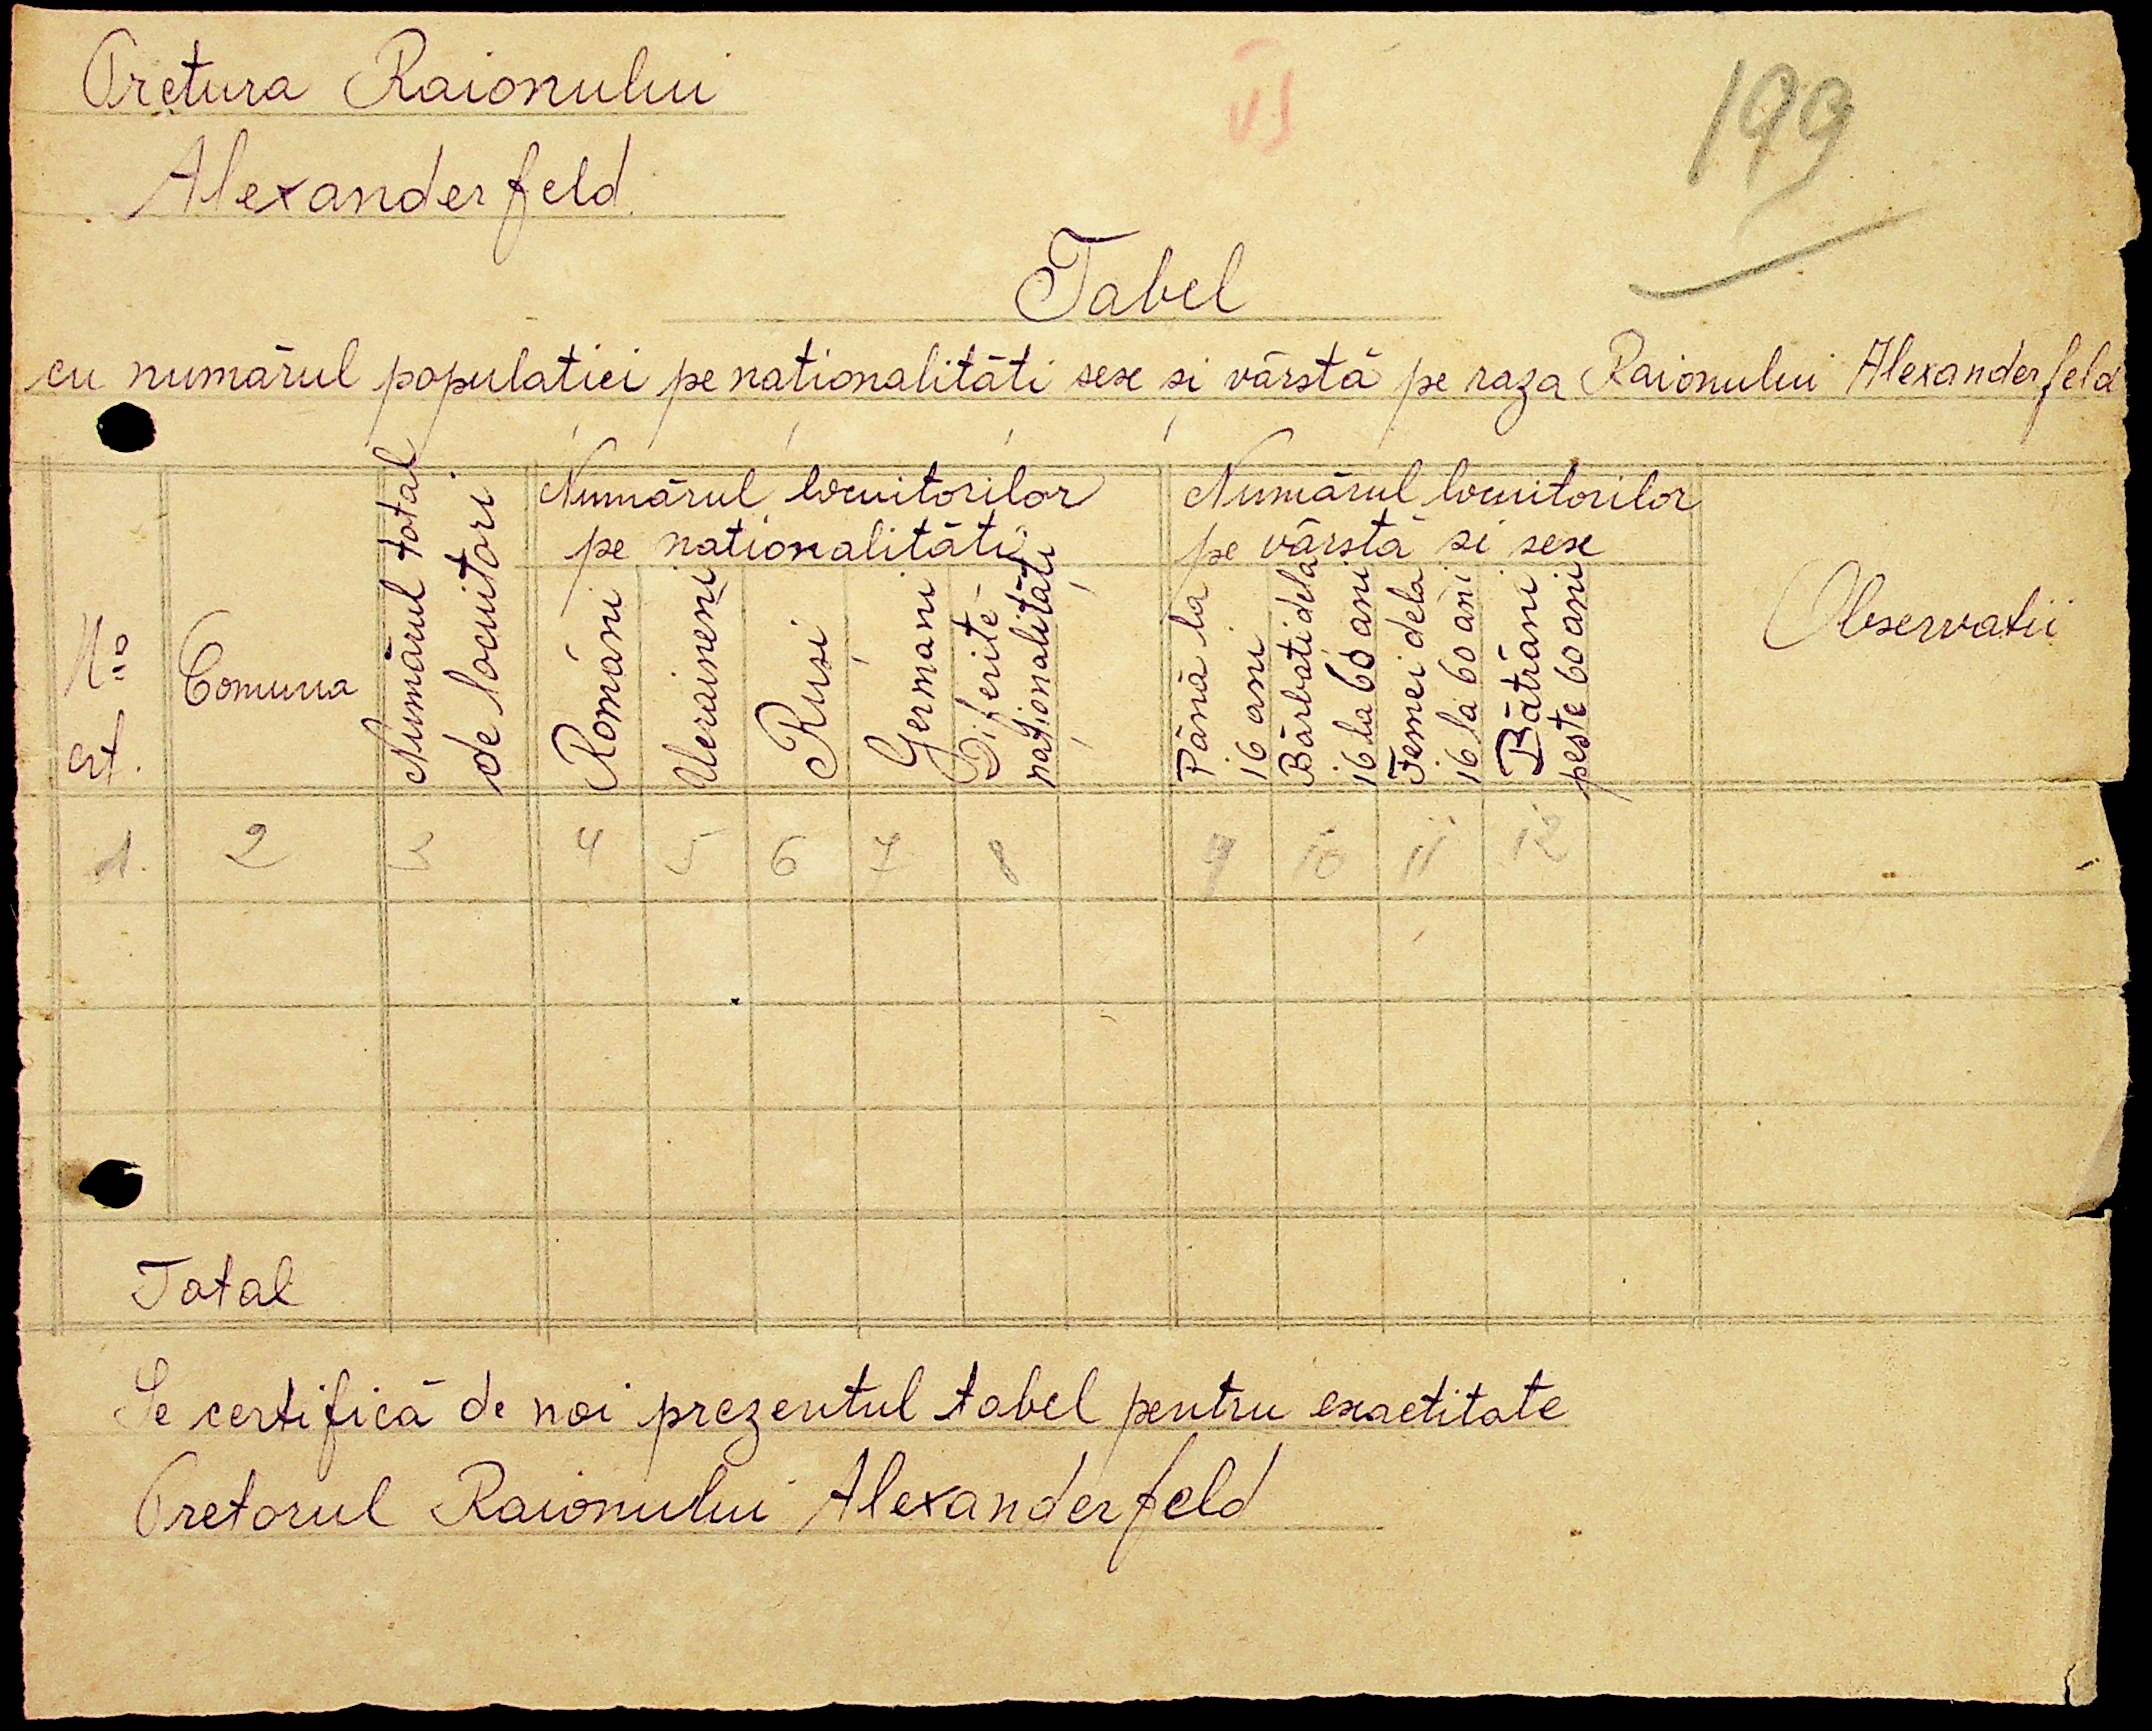 Pretura Raionului
VI
199
Alexanderfeld.
Tabel
cu numărul populației pe naționalități sexe și vârstă pe raza Raionului Alexanderfeld
No crt.
Comuna
Numărul total de locuitori
Numărul locuitorilor
pe naționalități
Români
Ucraineni
Ruși
Germani
Diferite naționalități
Numărul locuitorilor
pe vârstă și sexe
Până la 16 ani
Bărbați dela 16 la 60 ani
Femei dela 16 la 60 ani
Bătrâni peste 60 ani
Observatii
1. 2 3 4 5 6 7 8 9 10 11 12
Total
Se certifică de noi prezentul tabel pentru exactitate
Pretorul Raionului Alexanderfeld